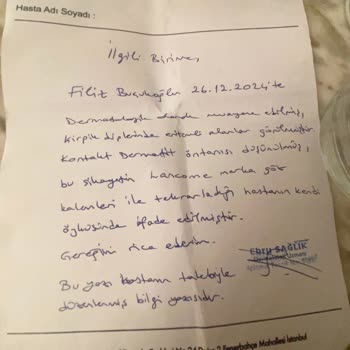 Hasta Adı Soyadı :
İlgili Birime,
Filiz 26.12.2024'te
muayene edilmiş,
kirpik diplerinde alanlar görülmüştür
Kontakt Dermatit öntanısı düşünülmüş,
bu şikayetin Lancome marka göz
kalemleri ile tekrarladığı hastanın kendi
öyküsünde ifade edilmiştir.
Gereğini rica ederim.
SAĞLIK
Bu yazı hastanın talebiyle
düzenlenmiş bilgi yazısıdır.
Fenerbahçe Mahallesi İstanbul